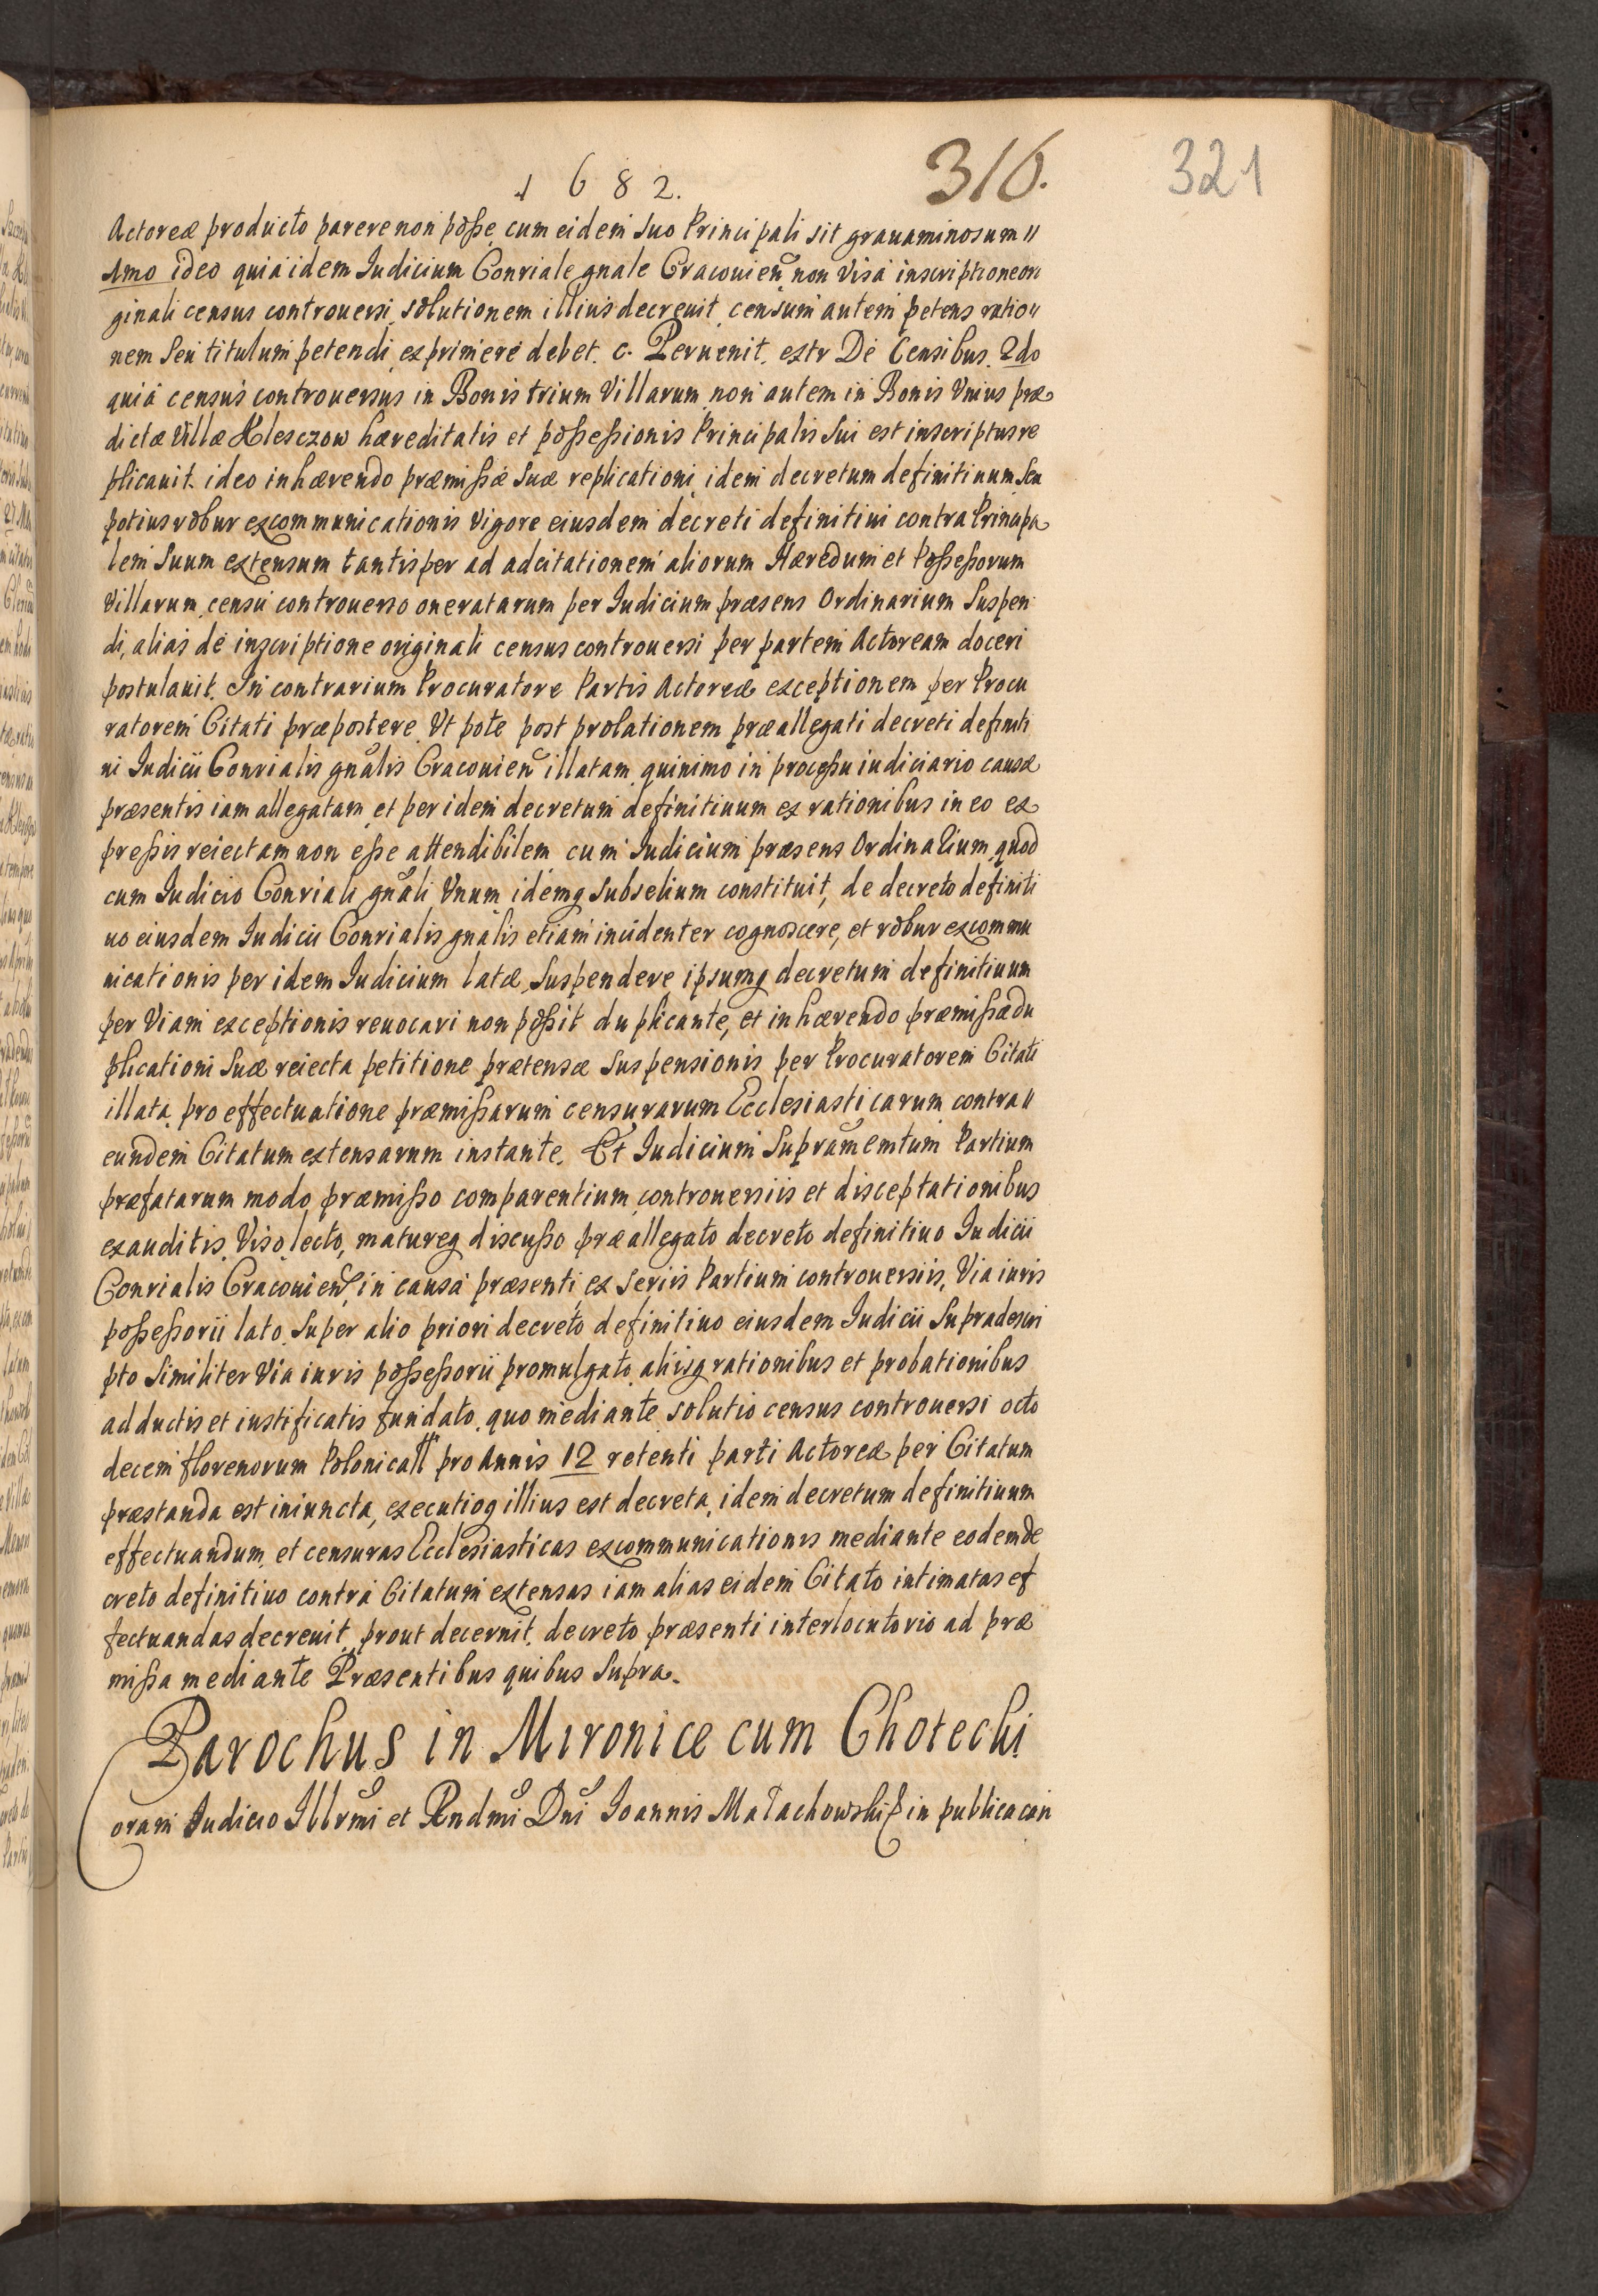 1682.
316.
321
Actoreæ producto parere non poße, cum eidem suo Principali sit grauaminosum
1mo ideo quia idem Iudicium Conriale gnale Cracouien non visa inscriptione ori
ginali census controuersi, solutionem illius decreuit, censum autem petens ratio
nem seu titulum petendi exprimere debet. c. Peruenit. extr De Censibus. 2do
quia census controuersus in Bonis trium Villarum non autem in Bonis Vnius præ
dictæ Villæ Klesczow hæreditatis et poßeßionis Principalis sui est inscriptus re
plicauit. ideo inhærendo præmißæ suæ replicationi, idem decretum definitiuum seu
potius robur excommunicationis vigore eiusdem decreti definitiui contra Principa
lem suum extensum tantisper ad adcitationem aliorum Hæredum et Poßeßorum
Villarum censu controuerso oneratarum per Iudicium præsens Ordinarium suspen
di, alias de inscriptione originali census controuersi per partem Actoream doceri
postulauit. In contrarium Procuratore Partis Actoreæ exceptionem per Procu
ratorem Citati præpostere Vt pote post prolationem præallegati decreti definiti
ui Iudicii Conrialis gnalis Cracouien illatam, quinimo in proceßu iudiciario causæ
præsentis iam allegatam, et per idem decretum definitiuum ex rationibus in eo ex
preßis reiectam non eße attendibilem cum Iudicium præsens Ordinarium, quod
cum Iudicio Conriali gnali Vnum idemq subselium constituit, de decreto definiti
uo eiusdem Iudicii Conrialis gnalis etiam incidenter cognoscere, et robur excommu
nicationis per idem Iudicium latæ suspendere, ipsumq decretum definitiuum
per Viam exceptionis reuocari non poßit duplicante, et inhærendo præmißæ du
plicationi suæ reiecta petitione prætensæ suspensionis per Procuratorem Citati
illata, pro effectuatione præmißarum censurarum Ecclesiasticarum contra
eundem Citatum extensarum instante. Et Iudicium supramemtum Partium
præfatarum modo præmißo comparentium controuersiis et disceptationibus
exauditis, Viso, lecto, matureq discußo præallegato decreto definitiuo Iudicii
Conrialis Cracouien, in causa præsenti, ex seriis Partium controuersiis, Via iuris
poßeßorii lato, super alio priori decreto definitiuo eiusdem Iudicii supradescri
pto similiter Via iuris poßeßorii promulgato, aliisq rationibus et probationibus
adductis et iustificatis fundato, quo mediante solutio census controuersi octo
decem florenorum Polonical pro Annis 12 retenti parti Actoreæ per Citatum
præstanda est iniuncta, executioq illius est decreta, idem decretum definitiuum
effectuandum, et censuras Ecclesiasticas excommunicationis mediante eodem de
creto definitiuo contra Citatum extensas iam alias eidem Citato intimatas ef
fectuandas decreuit, prout decernit, decreto præsenti interlocutorio ad præ
mißa mediante Præsentibus quibus supra.
Parochus in Mironice cum Chotechi
oram Iudicio Illrmi et Rndmi Dni Ioannis Małachowski in publica con